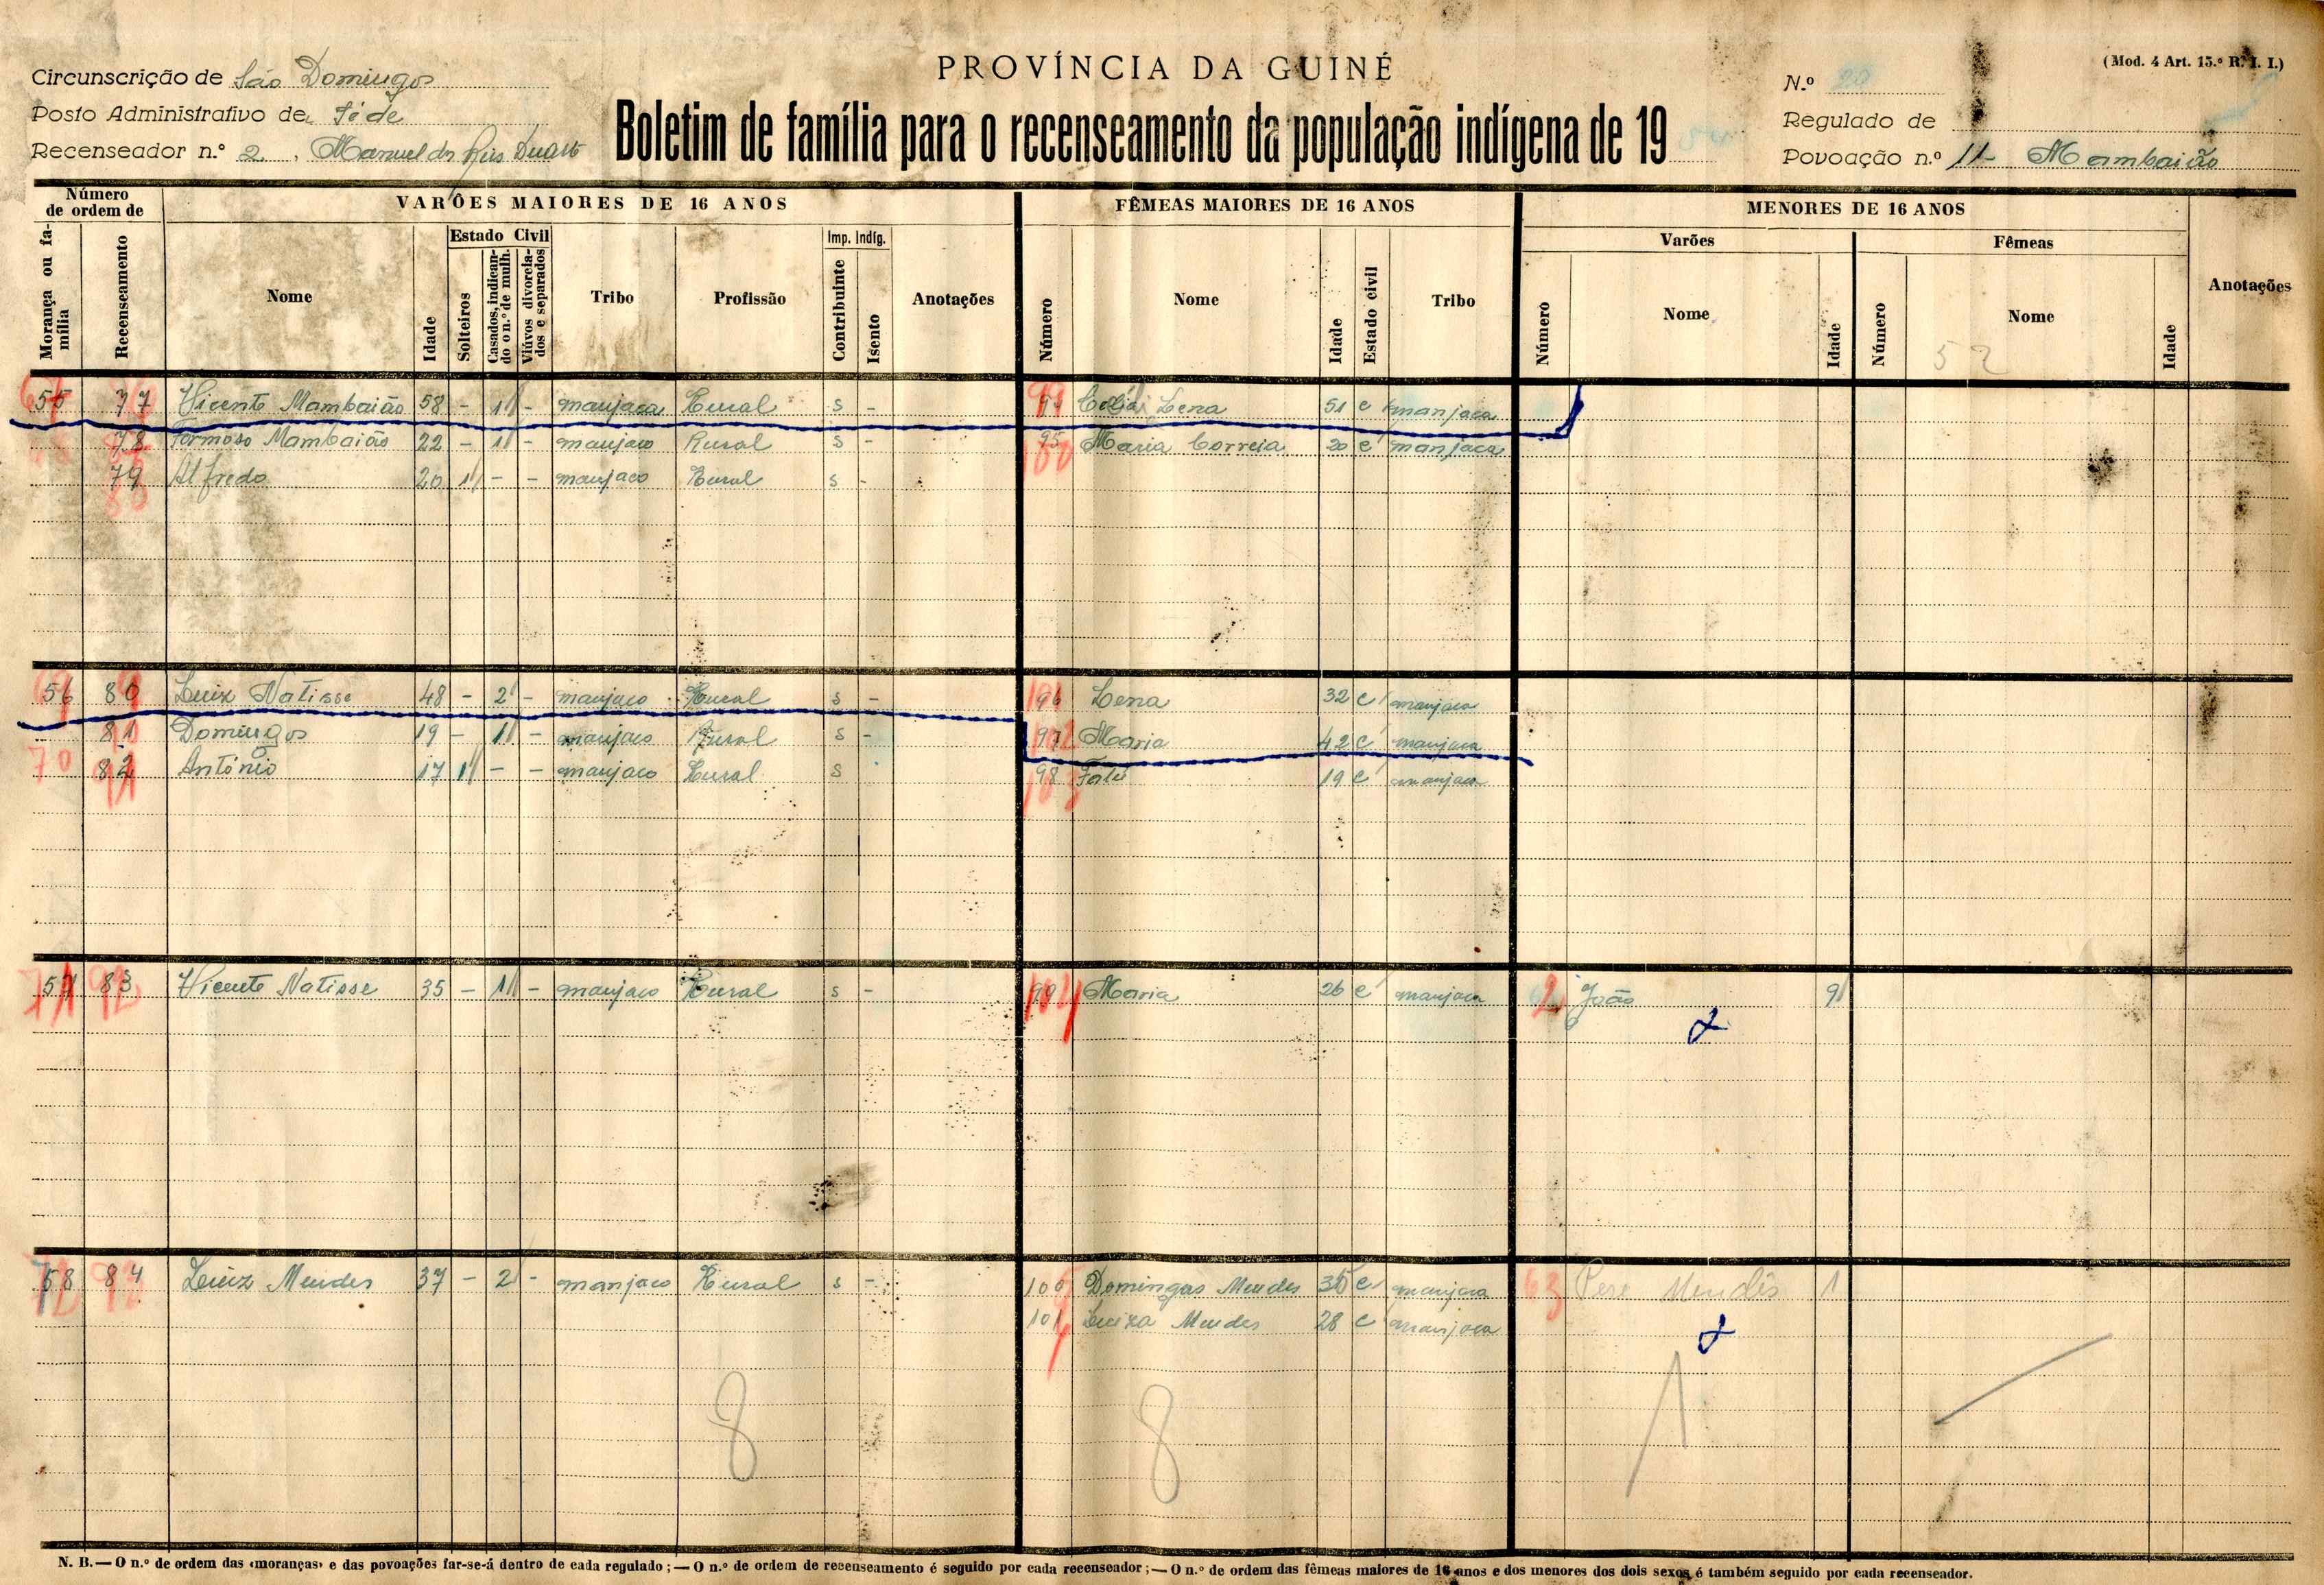 PROVÍNCIA DA GUINÉ
(Mod. 4 Art. 15.º R. I. I.)
Circunscrição de São Domingos
Posto Administrativo de Séde
Recenseador n.º 2, Manuel dos Reis Duarte
Boletim de família para o recenseamento da população indígena de 1954
N.º 20
Regulado de
Povoação n.º 11- Mambaião
Número de ordem de
VARÕES MAIORES DE 16 ANOS
FÊMEAS MAIORES DE 16 ANOS
MENORES DE 16 ANOS
Estado Civil
Imp. Indíg.
Varões
Fêmeas
Morança ou família
Recenseamento
Nome
Idade
Solteiros
Casados, indicando o n.º de mulh.
Viúvos divorciados e separados
Tribo
Profissão
Contribuinte
Isento
Anotações
Número
Nome
Idade
Estado civil
Tribo
Número
Nome
Idade
Número
Nome
Idade
Anotações
52
55 77 Vicente Mambaião 58 - 1 - manjaca Rural s - 94 Lena 51 c manjaca
78 Formoso Mambaião 22 - 1 - manjaco Rural s - 95 Maria Correia 20 c manjaca
79 Alfredo 20 1 - - manjaco Rural s -
56 80 Luiz Natisse 48 - 2 - manjaco Rural s - 96 Lena 32 c manjaca
81 Domingos 19 - 1 - manjaco Rural s - 97 Maria 42 c manjaca
70 82 António 17 1 - - manjaco Rural s 98 19 c manjaca
57 83 Vicente Natisse 35 - 1 - manjaco Rural s - 99 Maria 26 c manjaca João 9
58 84 Luiz Mendes 37 - 2 - manjaco Rural s - 100 Domingas Mendes 35 c manjaca 63 Pere Mendes 1
101 Luiza Mendes 28 c manjaca
8 8 1
N. B. — O n.º de ordem das «moranças» e das povoações far-se-á dentro de cada regulado; — O n.º de ordem de recenseamento é seguido por cada recenseador; — O n.º de ordem das fêmeas maiores de 16 anos e dos menores dos dois sexos é também seguido por cada recenseador.